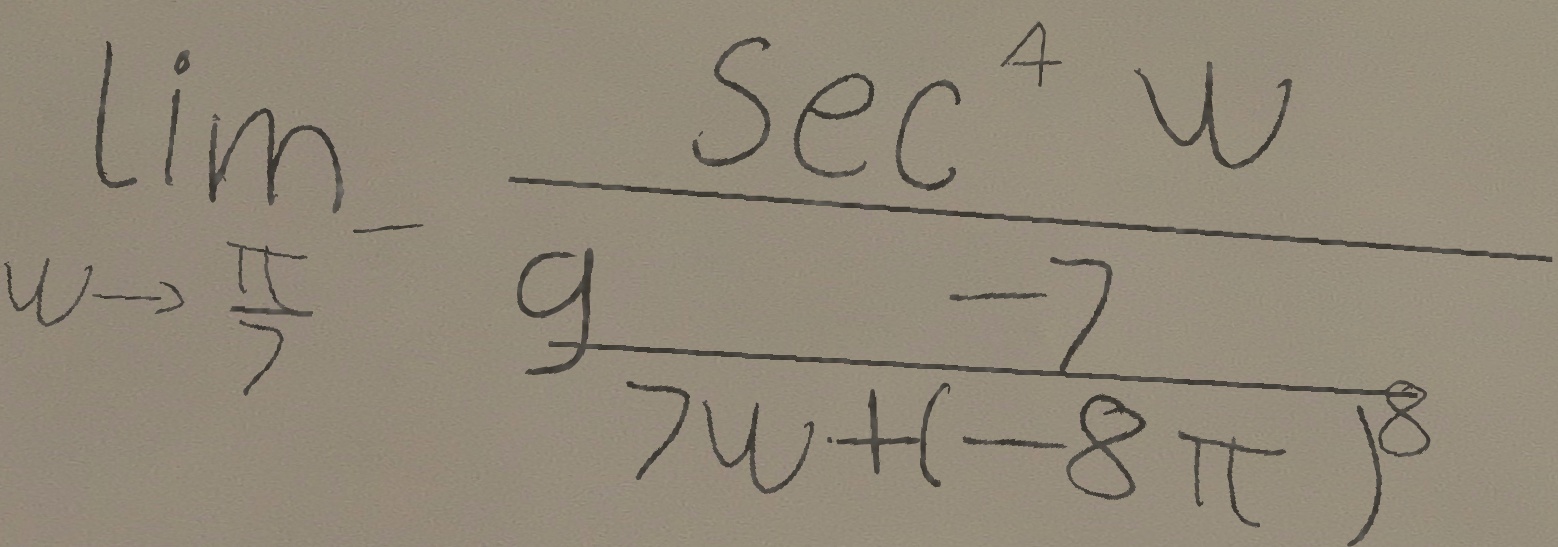 \lim_{w \to \frac{\pi}{7}^-} \frac{\sec^4 w}{\frac{9 \quad -7}{7w + (-8\pi)^8}}